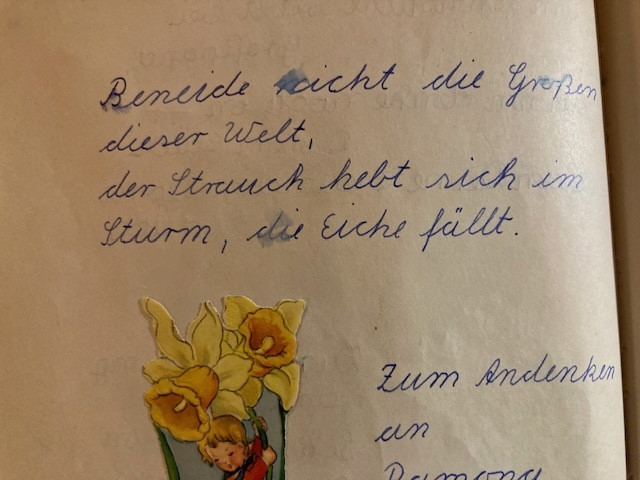 Beneide nicht die Großen
dieser Welt,
der Strauch hebt sich im
Sturm, die Eiche fällt.
Zum Andenken
an
Ramona